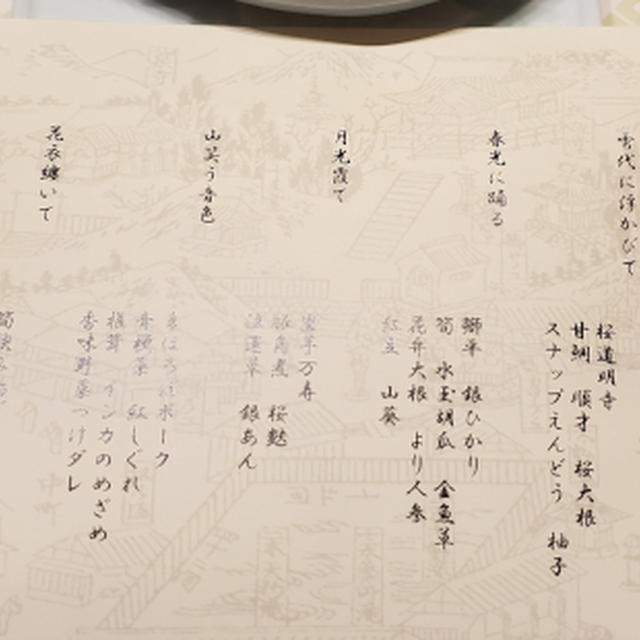 に浮かひて
桜道明寺
甘鯛 順才 桜大根
スナップえんどう 柚子
春光に踊る
鰤 銀ひかり
筍 水玉胡瓜 金魚草
花弁大根 より人参
紅豆 山葵
月光霞て
万寿
角煮 桜麩
草 銀あん
山笑う音色
まほろばポーク
紅しぐれ
椎茸 インカのめざめ
香味野菜つけダレ
花衣纏いて